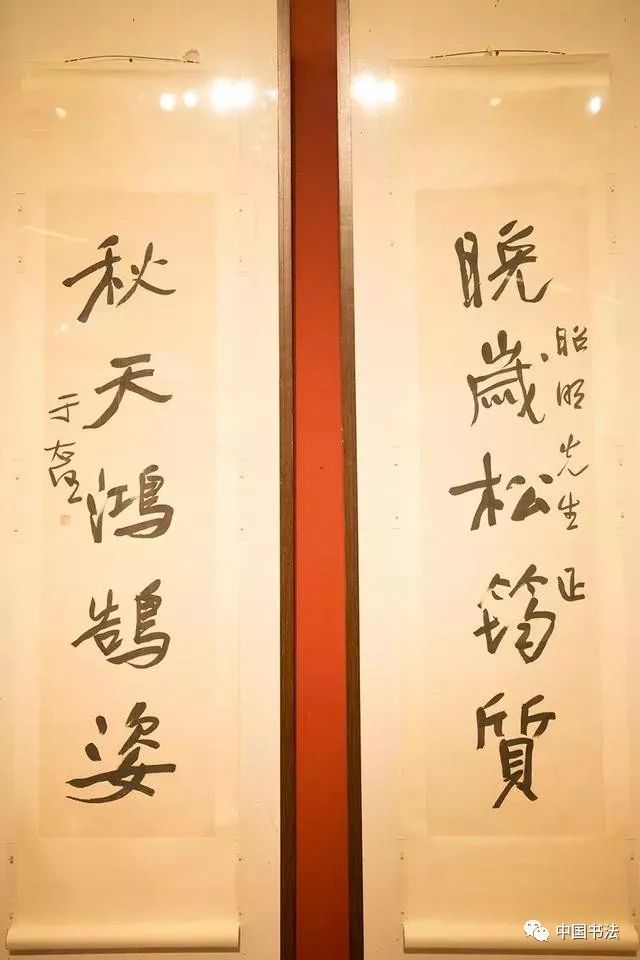 晚歲松筠質
昭明先生正
秋天鴻鵠姿
于右任
中国书法